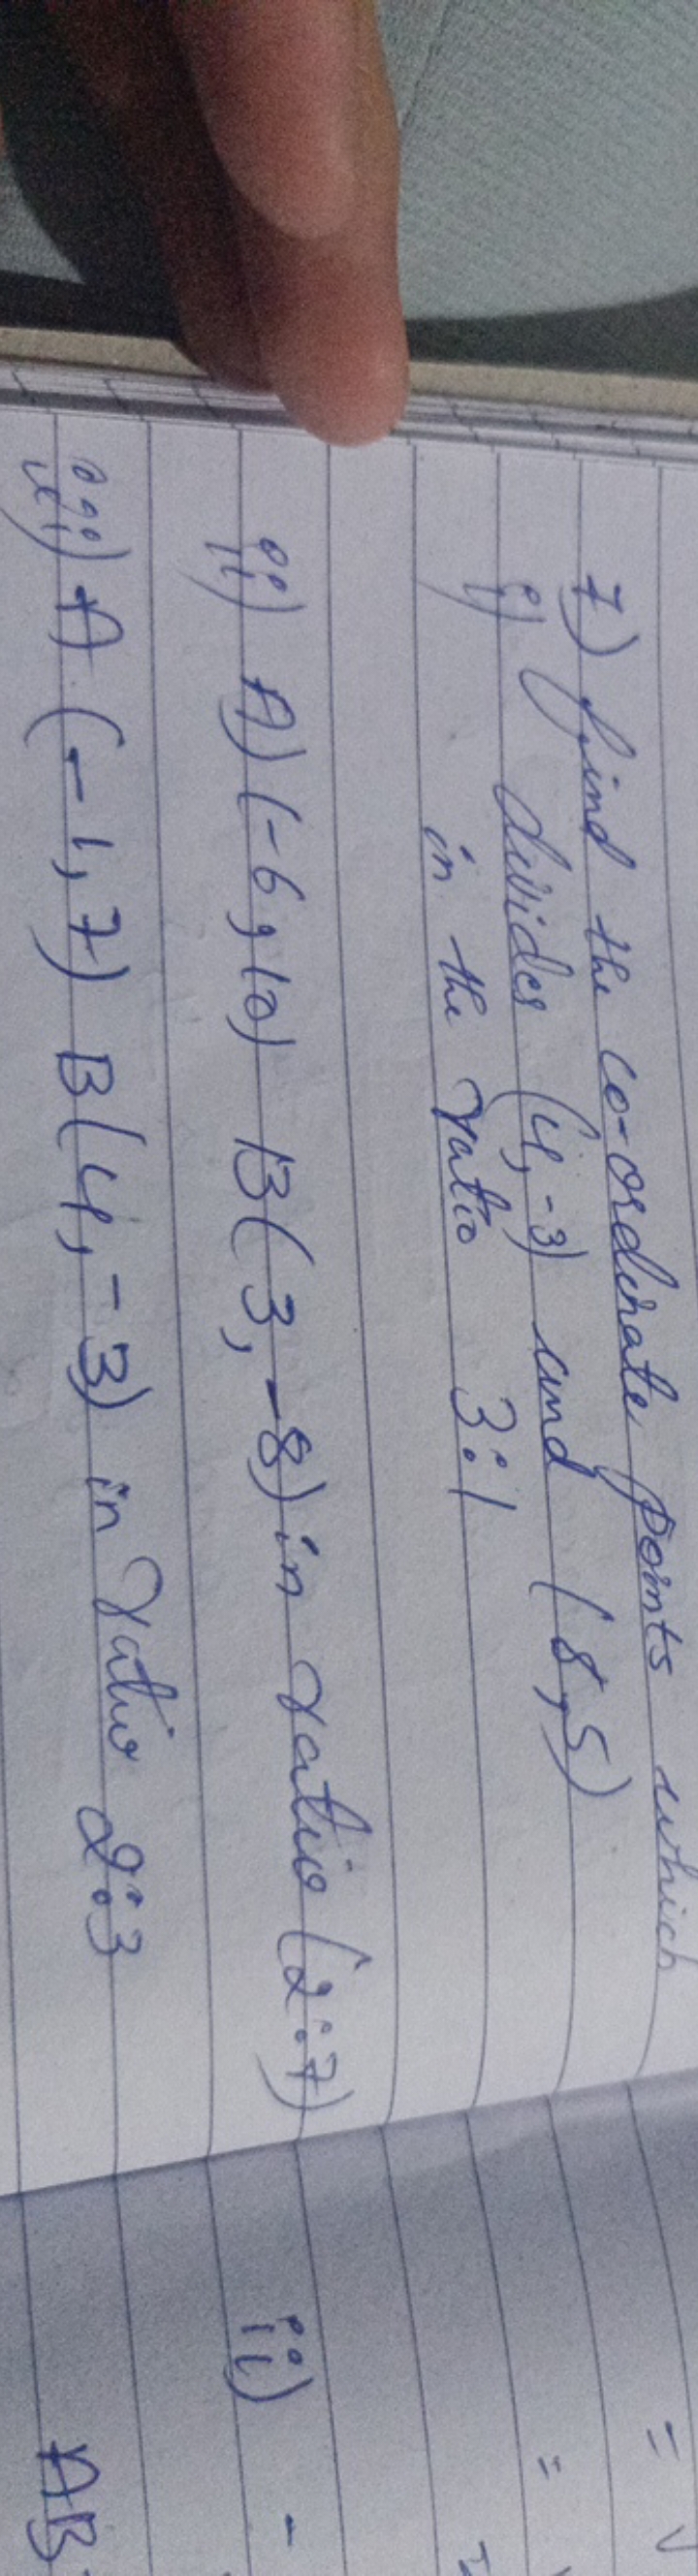 7) find the co-ordinate points which
i) divides (4,-3) and (8,5)
in the ratio 3:1
ii) A) (-6,10) B(3,-8) in ratio (2:7)
iii) A (-1,7) B(4,-3) in ratio 2:3
=
=
ii) -
AB